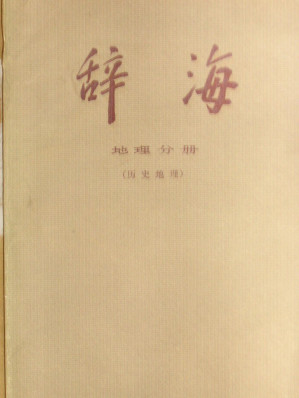 辞海
地理分册
(历史地理)